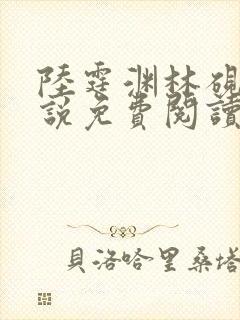 陸霆渊林硯
說免費閱讀
貝洛哈里桑塔